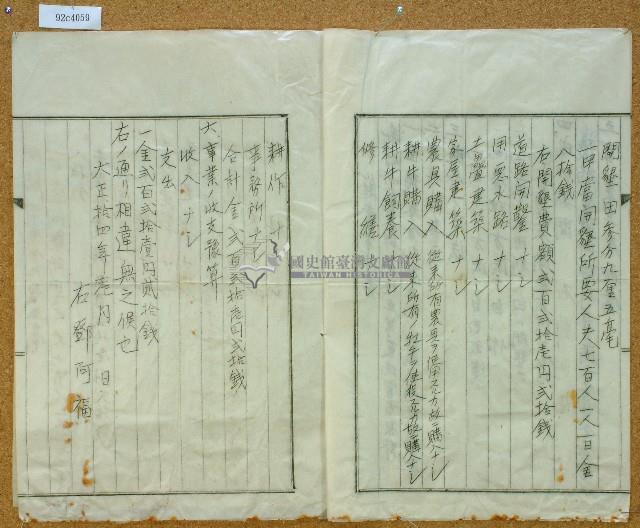 92c4059
開墾田参分九厘五毫
一甲當開墾所要人夫七百人一人一日金
八拾錢
右開墾費額弍百弍拾壱円弍拾錢
道路開鑿ナシ
用悪水路ナシ
土壘建築ナシ
家屋建築ナシ
農具購入従来所有農具ヲ使用スル方故購入ナシ
耕牛購入従来所有ノ紅牛ヲ使役スル方故購入ナシ
耕牛飼養ナシ
修繕ナシ
耕作ナシ
事務所ナシ
合計金弍百弍拾壱円弍拾錢
六、事業ノ収支豫算
収入ナシ
支出
一金弍百弍拾壹円貳拾錢
右ノ通リ相違無之候也
大正拾四年壱月 日
右 鄧阿福
國史館臺灣文獻館
TAIWAN HISTORICA